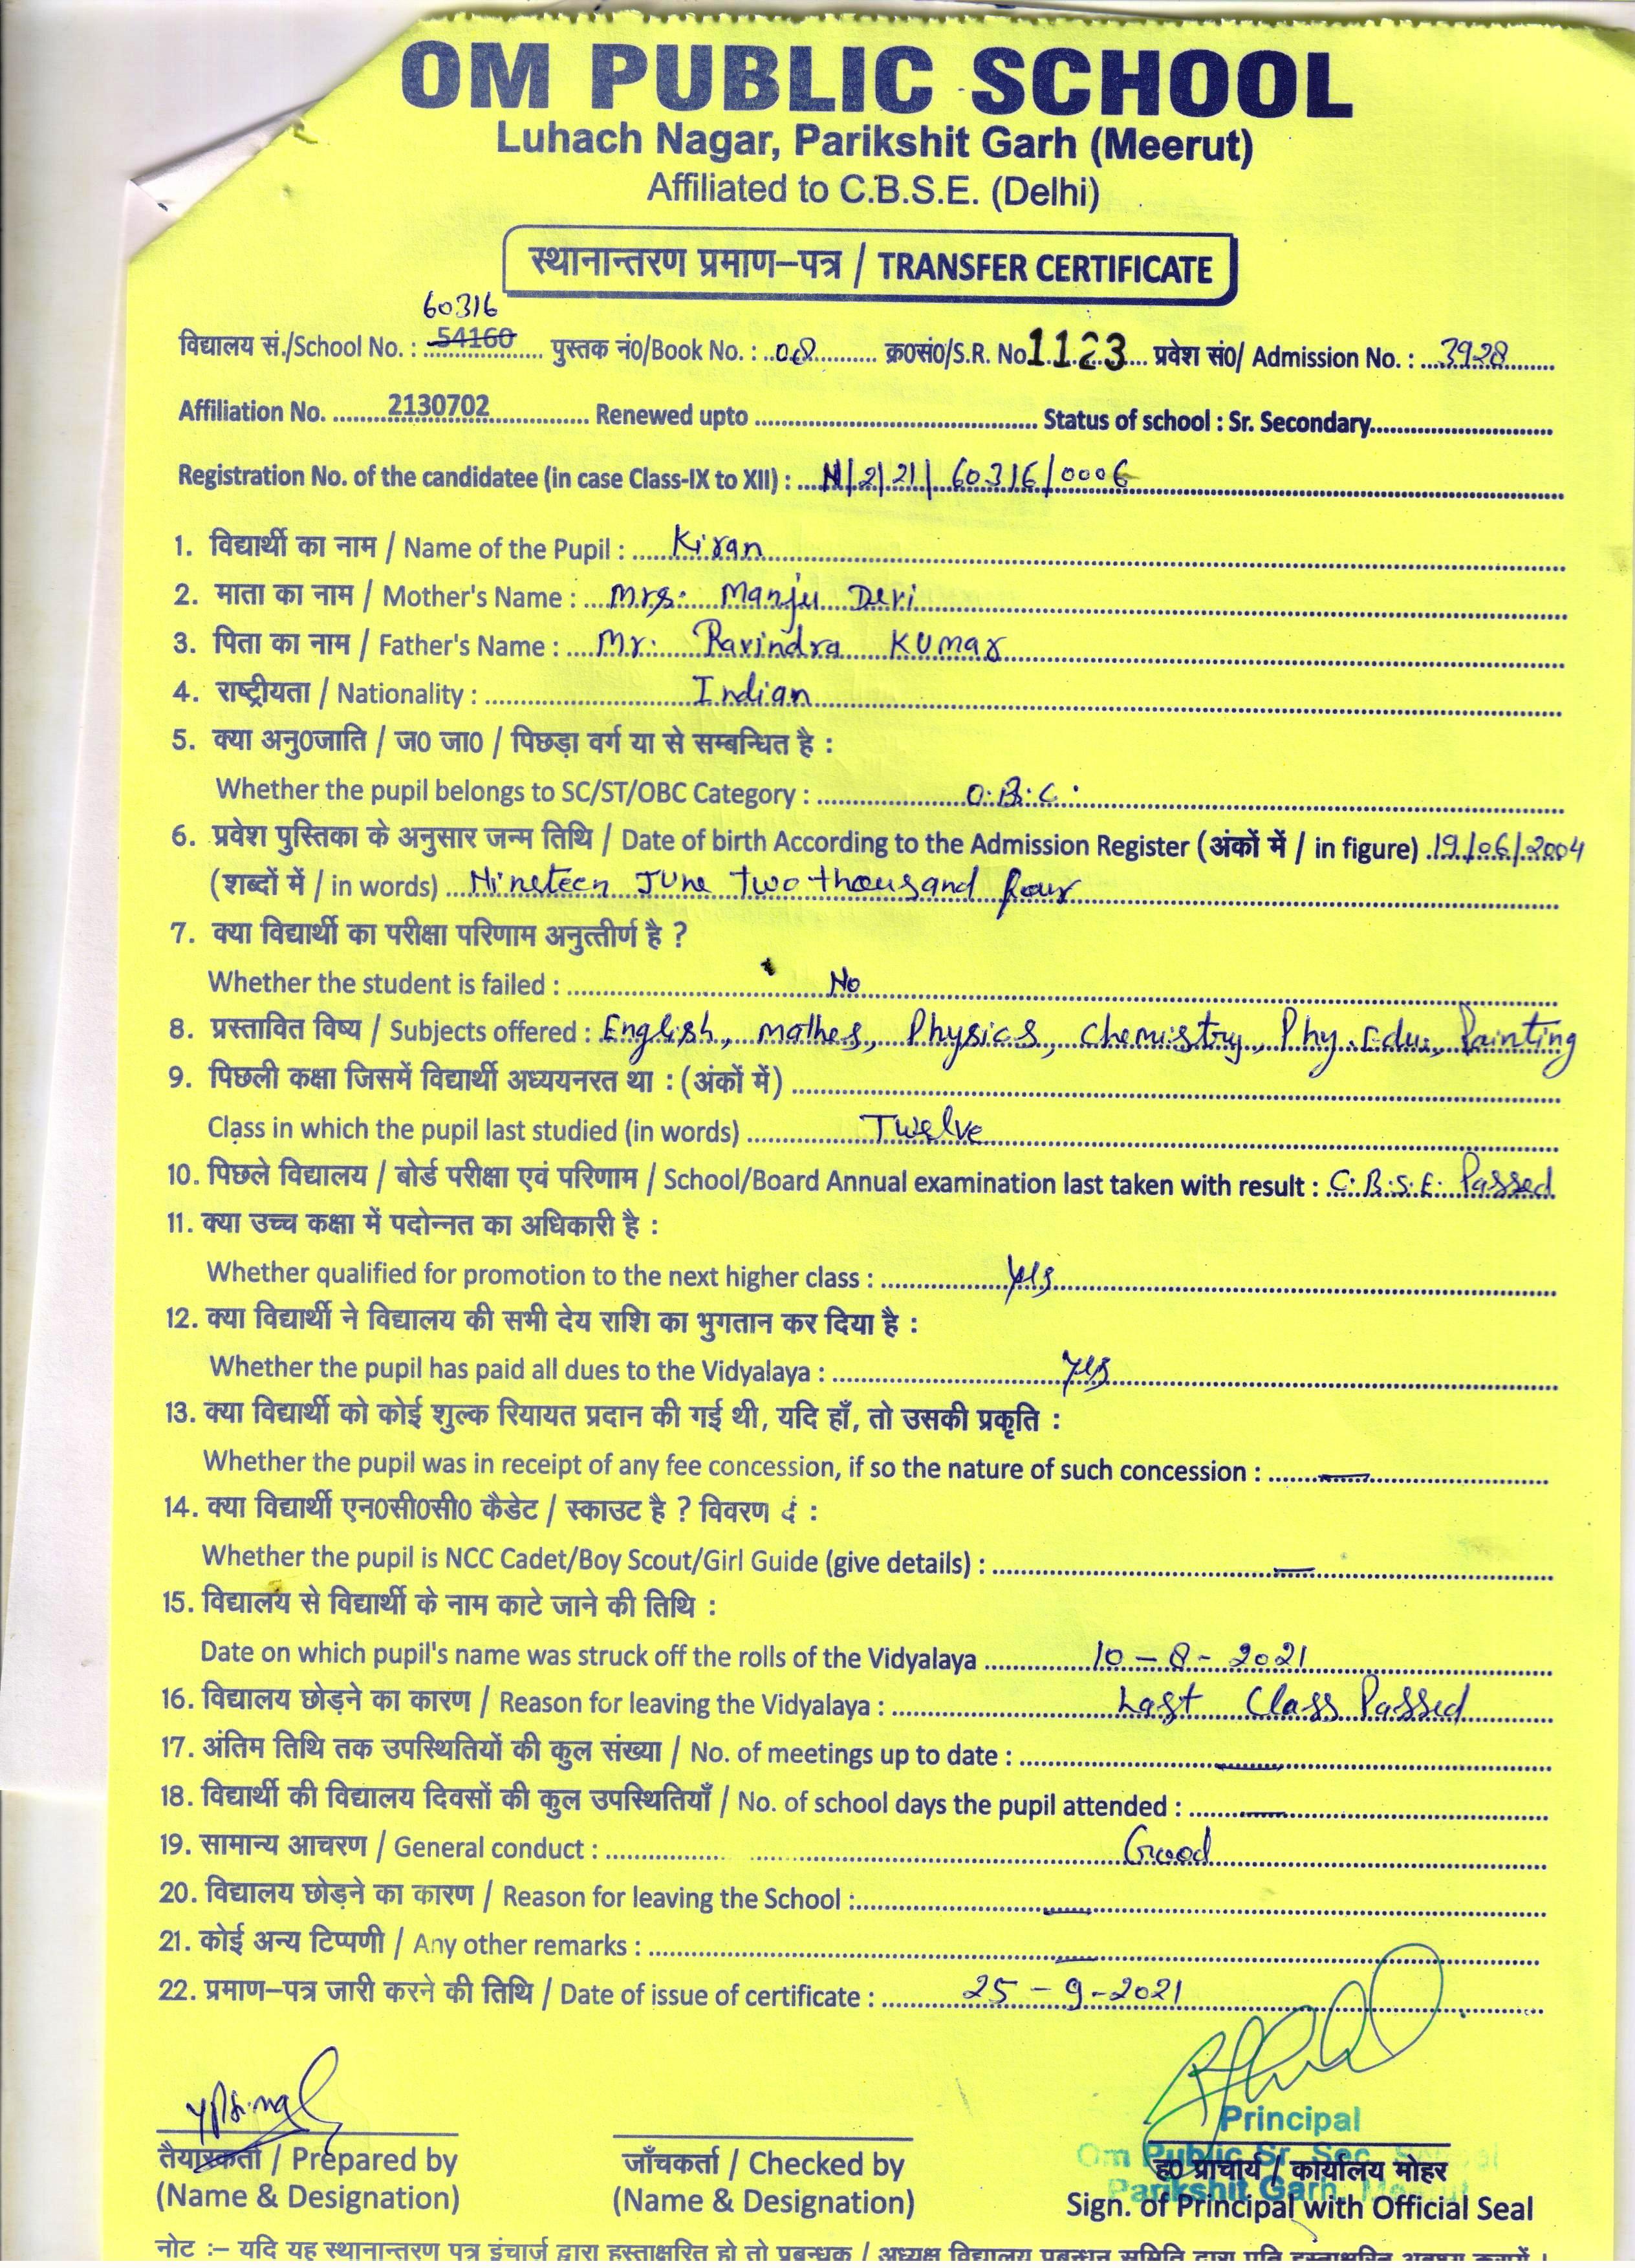 OM PUBLIC SCHOOL
Luhach Nagar, Parikshit Garh (Meerut)
Affiliated to C.B.S.E. (Delhi)
स्थानान्तरण प्रमाण–पत्र / TRANSFER CERTIFICATE
60316
विद्यालय सं./School No. : 54160 पुस्तक नं0/Book No. : 08 क्र0सं0/S.R. No 1123 प्रवेश सं0/ Admission No. : 3928
Affiliation No. 2130702 Renewed upto Status of school : Sr. Secondary
Registration No. of the candidatee (in case Class-IX to XII) : N/2/21/60316/0006
1. विद्यार्थी का नाम / Name of the Pupil : Kiran
2. माता का नाम / Mother's Name : Mrs. Manju Devi
3. पिता का नाम / Father's Name : Mr. Ravindra Kumar
4. राष्ट्रीयता / Nationality : Indian
5. क्या अनु0जाति / ज0 जा0 / पिछड़ा वर्ग या से सम्बन्धित है :
Whether the pupil belongs to SC/ST/OBC Category : O.B.C.
6. प्रवेश पुस्तिका के अनुसार जन्म तिथि / Date of birth According to the Admission Register (अंकों में / in figure) 19/06/2004
(शब्दों में / in words) Nineteen June two thousand four
7. क्या विद्यार्थी का परीक्षा परिणाम अनुत्तीर्ण है ?
Whether the student is failed : No
8. प्रस्तावित विष्य / Subjects offered : English, mathes, Physics, Chemistry, Phy. Edu., Painting
9. पिछली कक्षा जिसमें विद्यार्थी अध्ययनरत था : (अंकों में)
Class in which the pupil last studied (in words) Twelve
10. पिछले विद्यालय / बोर्ड परीक्षा एवं परिणाम / School/Board Annual examination last taken with result : C.B.S.E. Passed
11. क्या उच्च कक्षा में पदोन्नत का अधिकारी है :
Whether qualified for promotion to the next higher class : yes
12. क्या विद्यार्थी ने विद्यालय की सभी देय राशि का भुगतान कर दिया है :
Whether the pupil has paid all dues to the Vidyalaya : yes
13. क्या विद्यार्थी को कोई शुल्क रियायत प्रदान की गई थी, यदि हाँ, तो उसकी प्रकृति :
Whether the pupil was in receipt of any fee concession, if so the nature of such concession : —
14. क्या विद्यार्थी एन0सी0सी0 कैडेट / स्काउट है ? विवरण दं :
Whether the pupil is NCC Cadet/Boy Scout/Girl Guide (give details) : —
15. विद्यालय से विद्यार्थी के नाम काटे जाने की तिथि :
Date on which pupil's name was struck off the rolls of the Vidyalaya 10 - 8 - 2021
16. विद्यालय छोड़ने का कारण / Reason for leaving the Vidyalaya : Last Class Passed
17. अंतिम तिथि तक उपस्थितियों की कुल संख्या / No. of meetings up to date : —
18. विद्यार्थी की विद्यालय दिवसों की कुल उपस्थितियाँ / No. of school days the pupil attended : —
19. सामान्य आचरण / General conduct : Good
20. विद्यालय छोड़ने का कारण / Reason for leaving the School : —
21. कोई अन्य टिप्पणी / Any other remarks : —
22. प्रमाण–पत्र जारी करने की तिथि / Date of issue of certificate : 25 - 9 - 2021
Principal
Om Public Sr. Sec. School
Parikshit Garh, Meerut
तैयारकर्ता / Prepared by जाँचकर्ता / Checked by ह0 प्राचार्य / कार्यालय मोहर
(Name & Designation) (Name & Designation) Sign. of Principal with Official Seal
नोट :– यदि यह स्थानान्तरण पत्र इंचार्ज द्वारा हस्ताक्षरित हो तो प्रबन्धक / अध्यक्ष विद्यालय प्रबन्धन समिति द्वारा प्रति हस्ताक्षरित अवश्य करायें ।